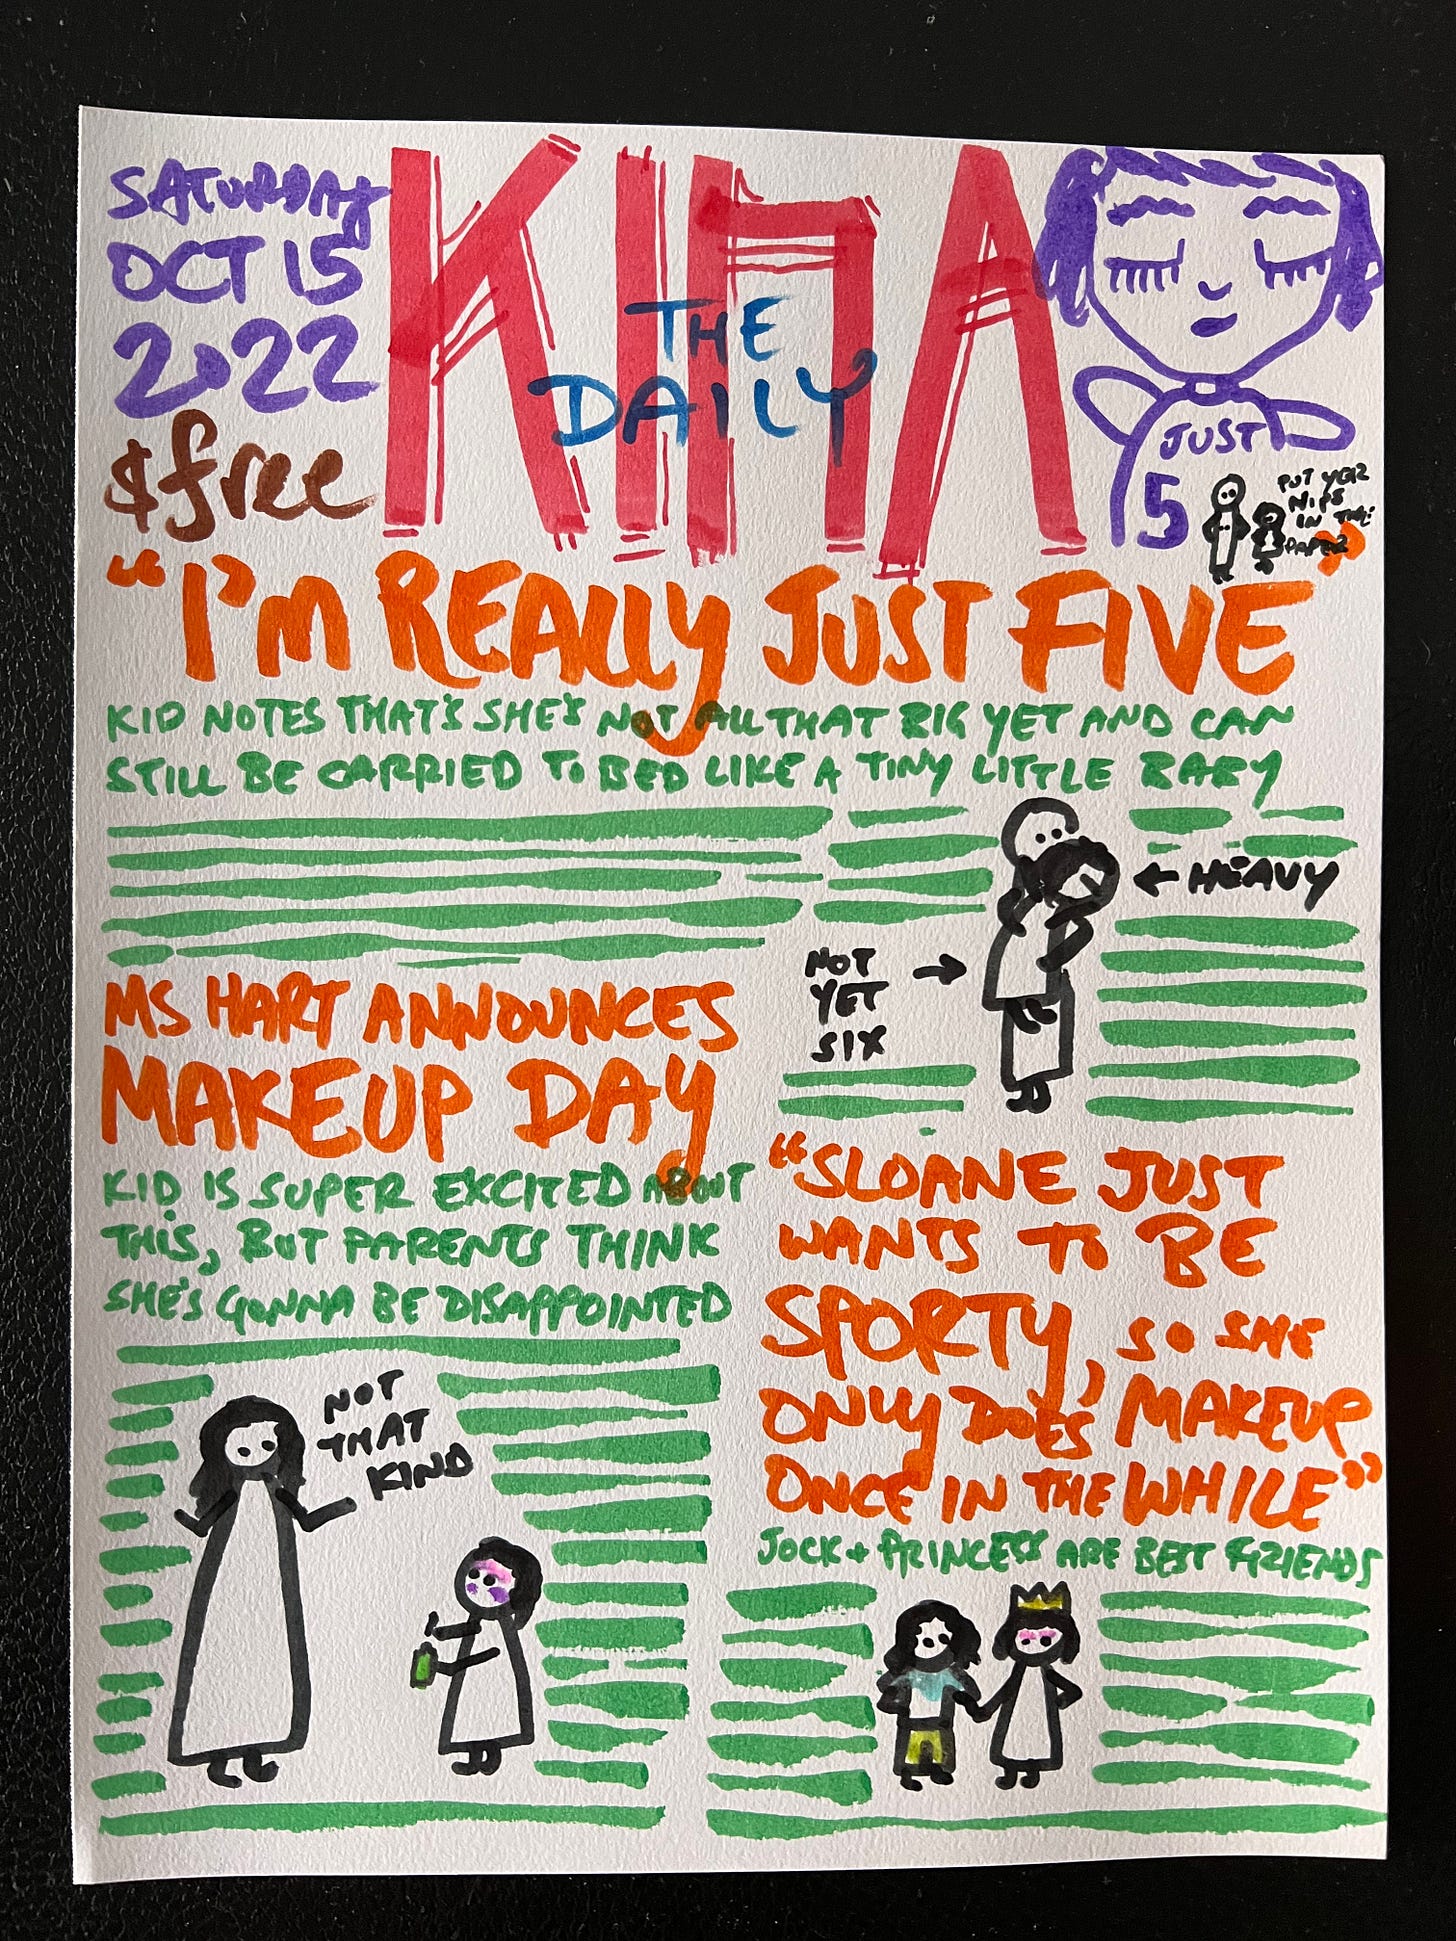 SATURDAY
OCT 15
2022
$free
KIMA
THE
DAILY
JUST
5
PUT YER
NIPS
IN THE
PAPER
"I'M REALLY JUST FIVE"
KID NOTES THAT'S SHE'S NOT ALL THAT BIG YET AND CAN
STILL BE CARRIED TO BED LIKE A TINY LITTLE BABY
← HEAVY
NOT →
YET
SIX
MS HART ANNOUNCES
MAKEUP DAY
KID IS SUPER EXCITED ABOUT
THIS, BUT PARENTS THINK
SHE'S GONNA BE DISAPPOINTED
NOT
THAT
KIND
"SLOANE JUST
WANTS TO BE
SPORTY, SO SHE
ONLY DOES MAKEUP
ONCE IN THE WHILE"
JOCK + PRINCESS ARE BEST FRIENDS